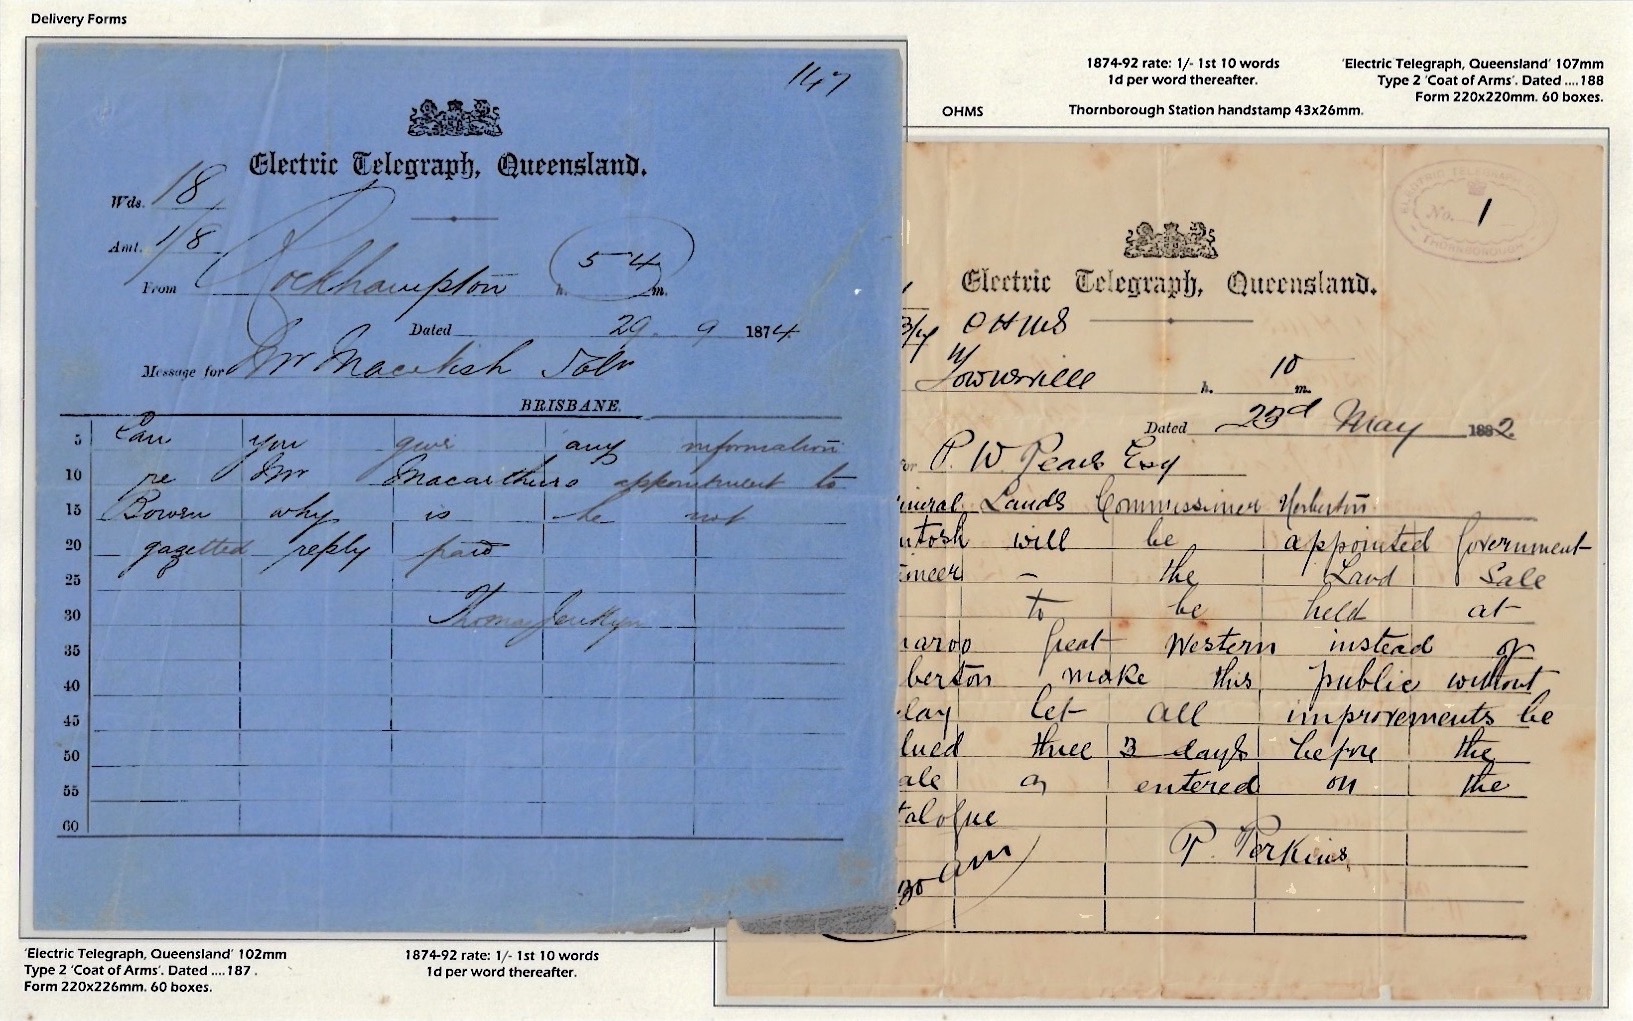 Delivery Forms
147
Electric Telegraph, Queensland.
Wds. 18
Amt. 1/8
From Rockhampton 5 h. 4 m.
Dated 29 9 1874
Message for Mr Macalish Solr
BRISBANE.
5 Can you give any information
10 re Mr Macarthurs appointment to
15 Bowen why is he not
20 gazetted reply paid
25
30 Thomas Jenkyn
35
40
45
50
55
60
'Electric Telegraph, Queensland' 102mm
Type 2 'Coat of Arms'. Dated ....187 .
Form 220x226mm. 60 boxes.
1874-92 rate: 1/- 1st 10 words
1d per word thereafter.
1874-92 rate: 1/- 1st 10 words
1d per word thereafter.
'Electric Telegraph, Queensland' 107mm
Type 2 'Coat of Arms'. Dated ....188
Form 220x220mm. 60 boxes.
OHMS
Thornborough Station handstamp 43x26mm.
ELECTRIC TELEGRAPH
No. 1
THORNBOROUGH
Electric Telegraph, Queensland.
3/4 OHMS
Townsville h. 10 m.
Dated 23rd May 1882
for P. W. Pears Esq
ineral Lands Commissioner Herberton
ntosh will be appointed Government
ineer – the Land Sale
to be held at
naroo Great Western instead of
berton make this public without
lay let all improvements be
lued three 3 days before the
ale or entered on the
talogue
P. Perkins
30 am